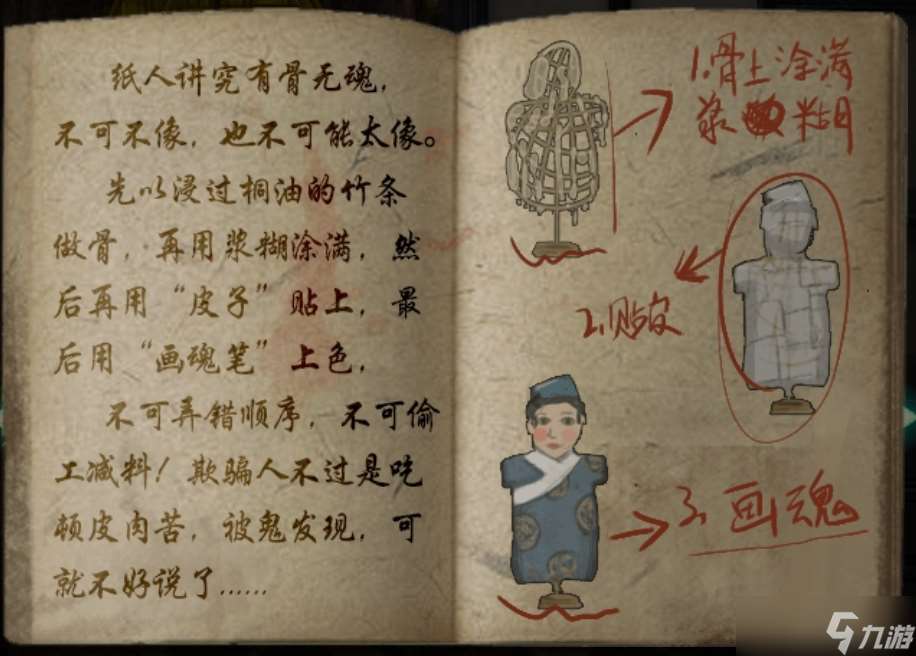 纸人讲究有骨无魂，
不可不像，也不可能太像。
先以浸过桐油的竹条
做骨，再用浆糊涂满，然
后再用“皮子”贴上，最
后用“画魂笔”上色，
不可弄错顺序，不可偷
工减料！欺骗人不过是吃
顿皮肉苦，被鬼发现，可
就不好说了……
1.骨上涂满
浆糊
2.贴皮
3.画魂
九游